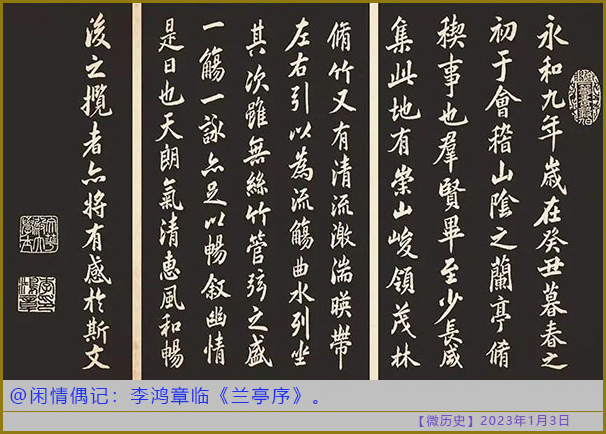 永和九年歲在癸丑暮春之
初于會稽山陰之蘭亭脩
稧事也羣賢畢至少長咸
集此地有崇山峻領茂林
脩竹又有清流激湍暎帶
左右引以為流觴曲水列坐
其次雖無絲竹管弦之盛
一觴一詠亦足以暢叙幽情
是日也天朗氣清惠風和暢
後之攬者亦將有感於斯文
@闲情偶记：李鸿章临《兰亭序》。
【微历史】2023年1月3日